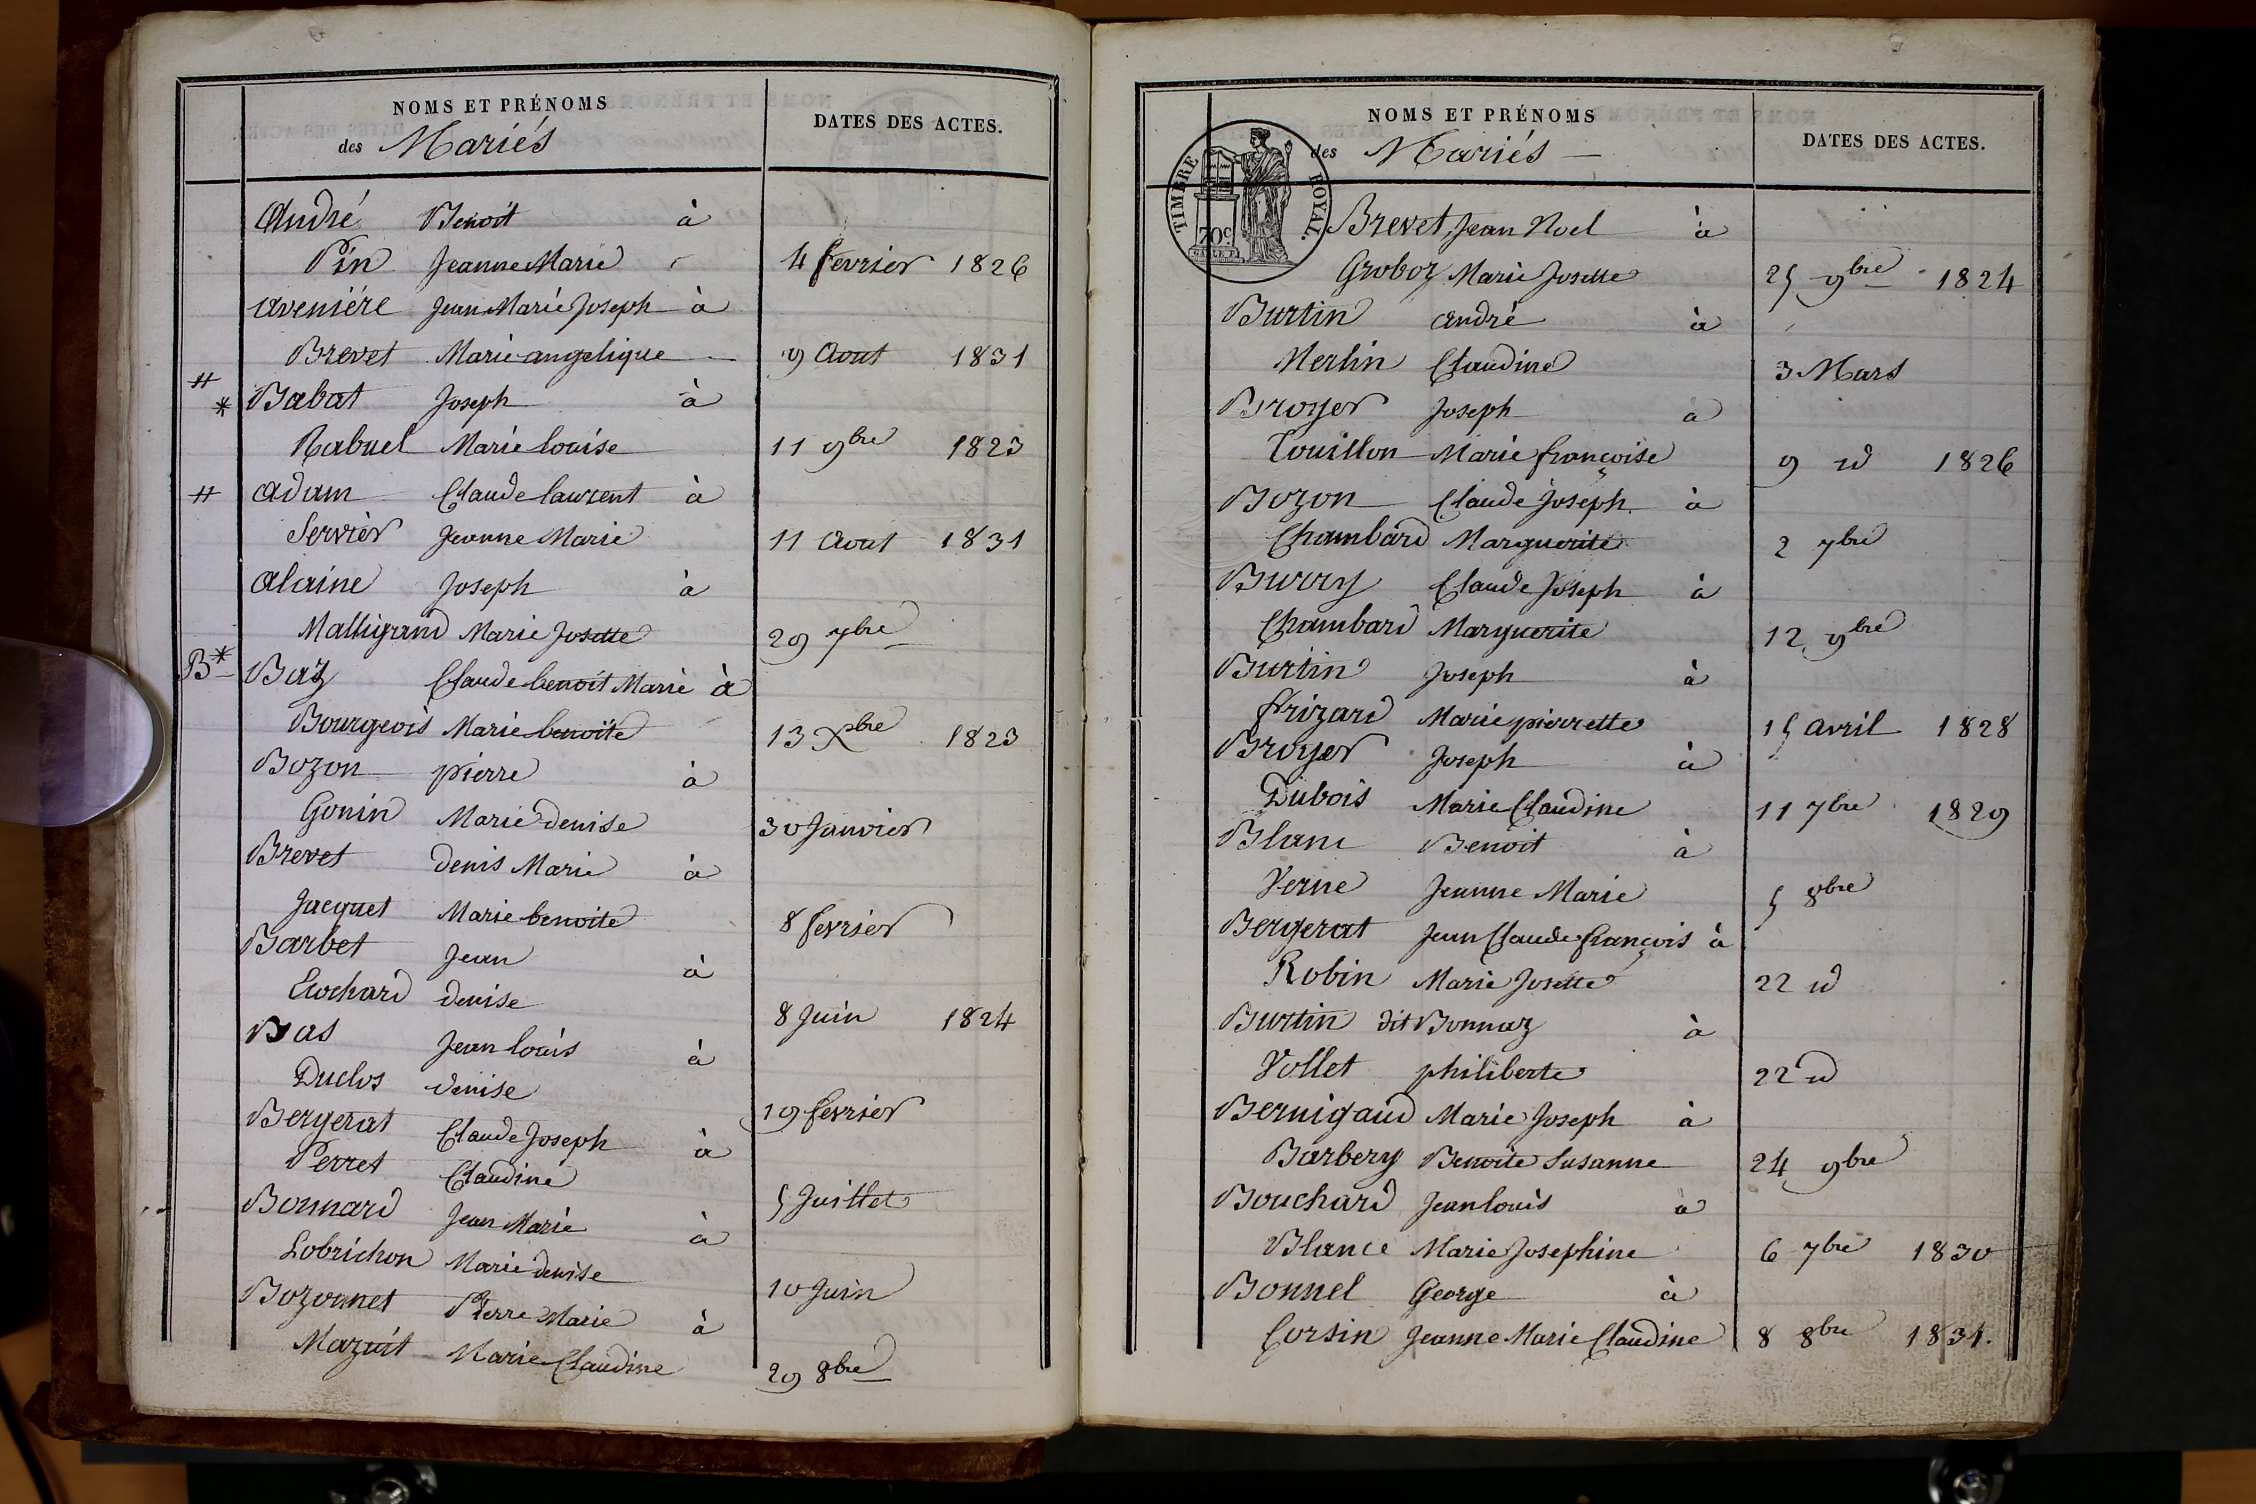 NOMS ET PRÉNOMS
des Mariés
DATES DES ACTES.
André Benoit à
Pin Jeanne Marie 4 fevrier 1826
aveniére Jean Marie Joseph à
Brevet Marie angelique 9 Aout 1831
#
* Babat Joseph à
Rabuel Marie louise 11 9bre 1823
# adam Claude laurent à
Servier Jeanne Marie 11 Aout 1831
alaine Joseph à
Malligand Marie Josette 29 7bre
B* Baz Claude benoit Marie à
Bourgeois Marie benoite 13 Xbre 1823
Bozon pierre à
Gonin Marie denise 30 Janvier
Brevet denis Marie à
Jacquet Marie benoite 8 fevrier
Barbet Jean à
Ecochard denise 8 Juin 1824
Bas Jean louis à
Duclos denise 19 fevrier
Bergerat Claude Joseph à
Perret Claudine 5 Juillet
Bonnard Jean Marie à
Lobrichon Marie denise 10 Juin
Bozonnet Pierre Marie à
Mazuit Marie Claudine 29 8bre
NOMS ET PRÉNOMS
des Mariés
DATES DES ACTES.
TIMBRE ROYAL.
70c.
Brevet Jean Noel à
Groboz Marie Josette 25 9bre 1824
Burtin andré à
Merlin Claudine 3 Mars
Broyer Joseph a
Touillon Marie françoise 9 id 1826
Bozon Claude Joseph à
Chambard Marguerite 2 7bre
Burry Claude Joseph à
Chambard Marguerite 12 9bre
Burtin Joseph à
frizard Marie pierrette 15 avril 1828
Broyer Joseph à
Dubois Marie Claudine 11 7bre 1829
Blanc Benoit à
Verne Jeanne Marie 5 8bre
Bergerat Jean Claude françois à
Robin Marie Josette 22 id
Burtin dit Bonnaz à
Vollet philiberte 22 id
Bernigaud Marie Joseph à
Barbery Benoite Susanne 24 9bre
Bouchard Jean louis à
Blance Marie Josephine 6 7bre 1830
Bonnel George à
Corsin Jeanne Marie Claudine 8 8bre 1831.